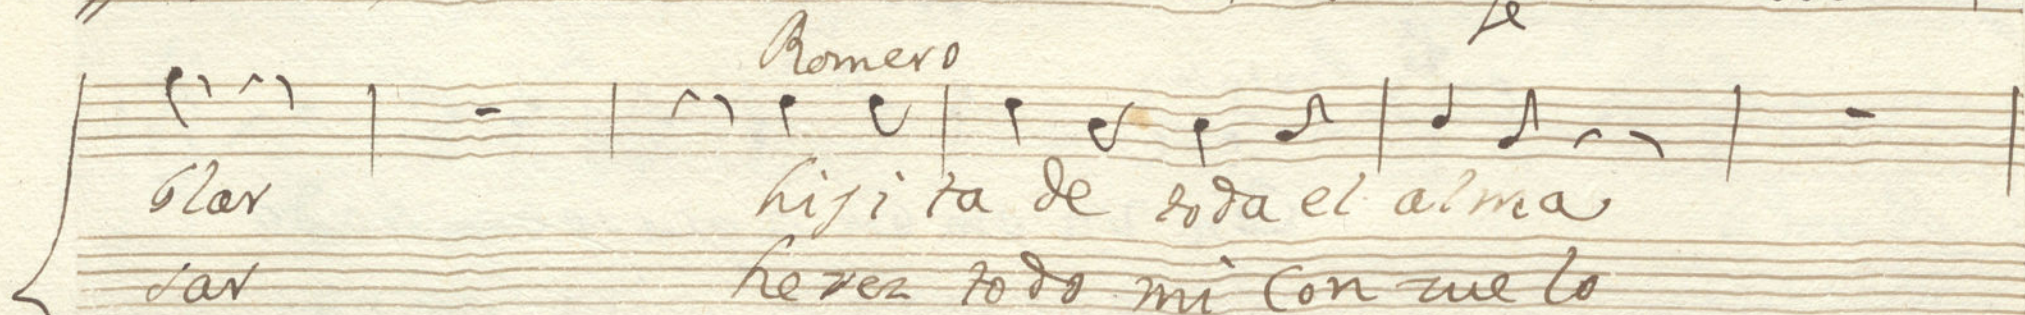 Romero
blar hiji ta de toda el alma
sar he rez todo mi Con zue lo